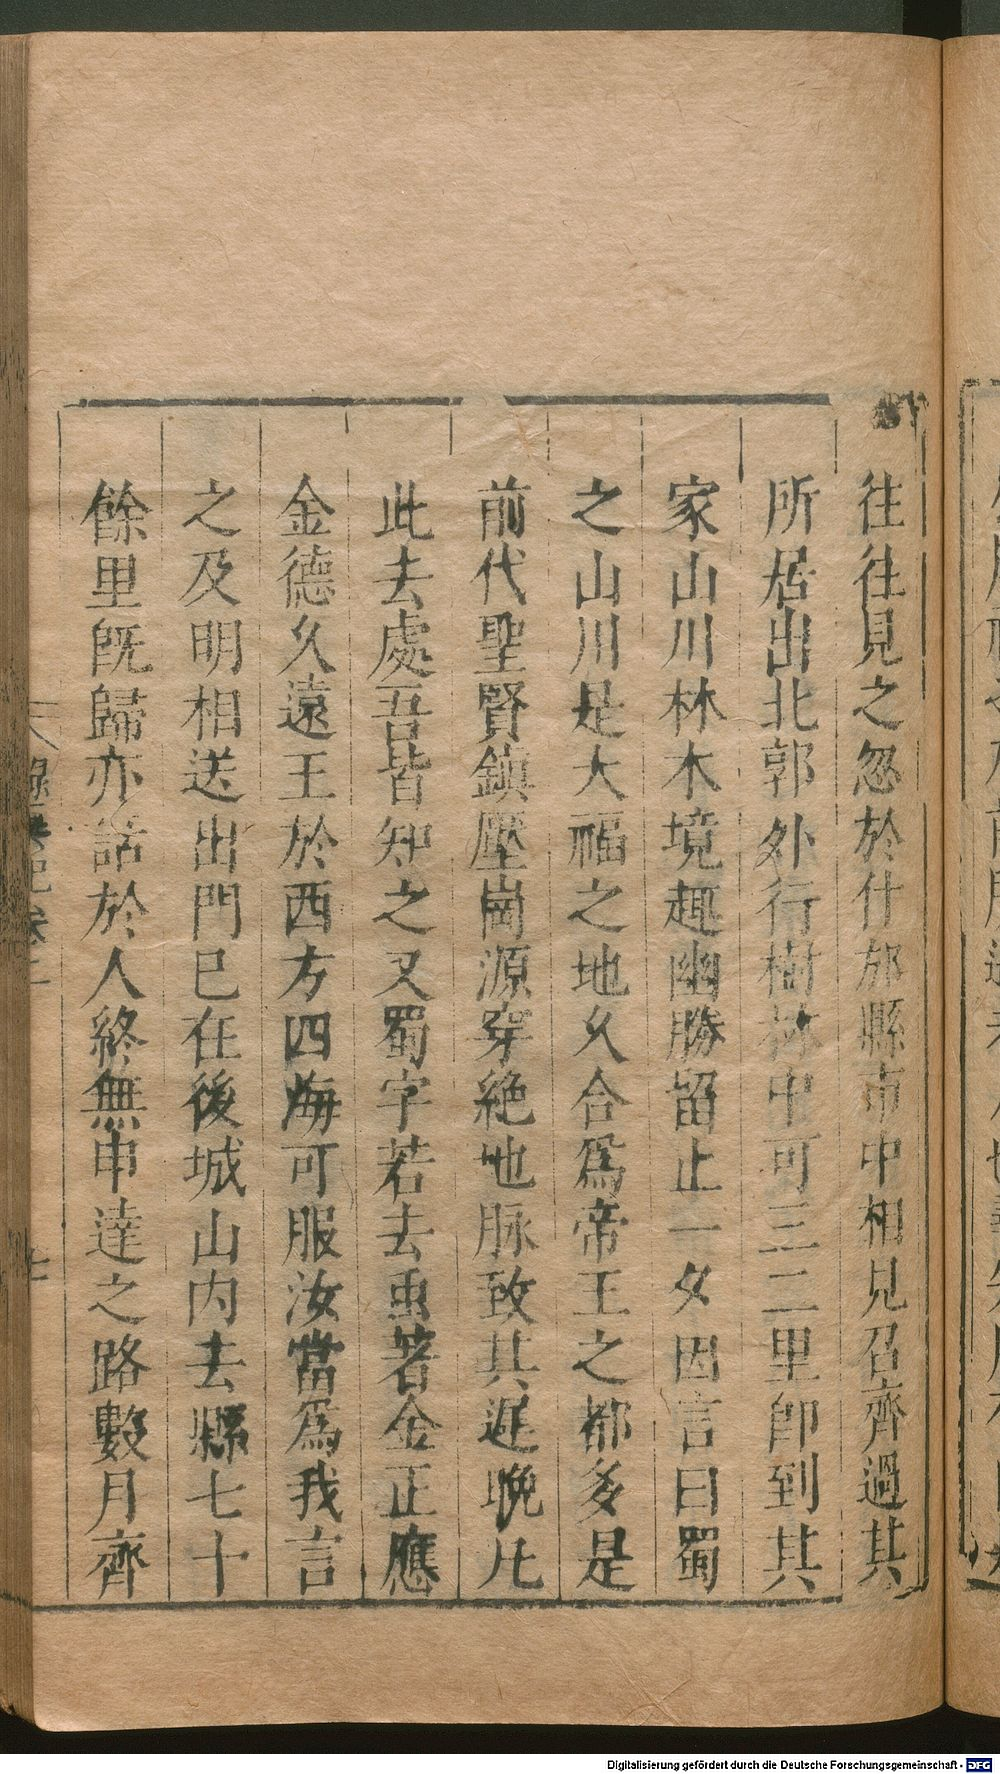 往往見之忽於什邡縣市中相見召齊過其
所居出北郭外行樹林中可三二里卽到其
家山川林木境趣幽勝留止一夕因言曰蜀
之山川是大福之地久合爲帝王之都多是
前代聖賢鎮壓崗源穿絶地脉致其遲晚凡
此去處吾皆知之又蜀字若去虫著金正應
金德久遠王於西方四海可服汝當爲我言
之及明相送出門已在後城山内去縣七十
餘里旣歸亦話於人終無申達之路數月齊
錄異記卷二
Digitalisierung gefördert durch die Deutsche Forschungsgemeinschaft - DFG